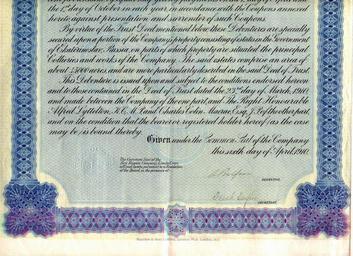 the 1st day of October in each year, in accordance with the Coupons annexed
hereto against presentation and surrender of such Coupons.
By virtue of the Trust Deed mentioned below these Debentures are specially
secured upon a portion of the Company's property consisting of estates in the Government
of Ekaterinoslav, Russia, on parts of which property are situated the principal
Collieries and works of the Company. The said estates comprise an area of
about acres and are more particularly described in the said Deed of Trust.
This Debenture is issued upon and subject to the conditions endorsed hereon
and to those contained in the Deed of Trust dated the 23rd day of March, 1910,
and made between the Company of the one part, and The Right Honourable
Alfred Lyttelton, K.C.M.P. and Charles Colin Esq., J.P. of the other part,
and on the condition that the bearer or registered holder hereof (as the case
may be) is bound thereby.
Given under the Common Seal of the Company
this sixth day of April, 1910.
The Common Seal of the
New Russia Company, Limited, was
of the Board, in the presence of